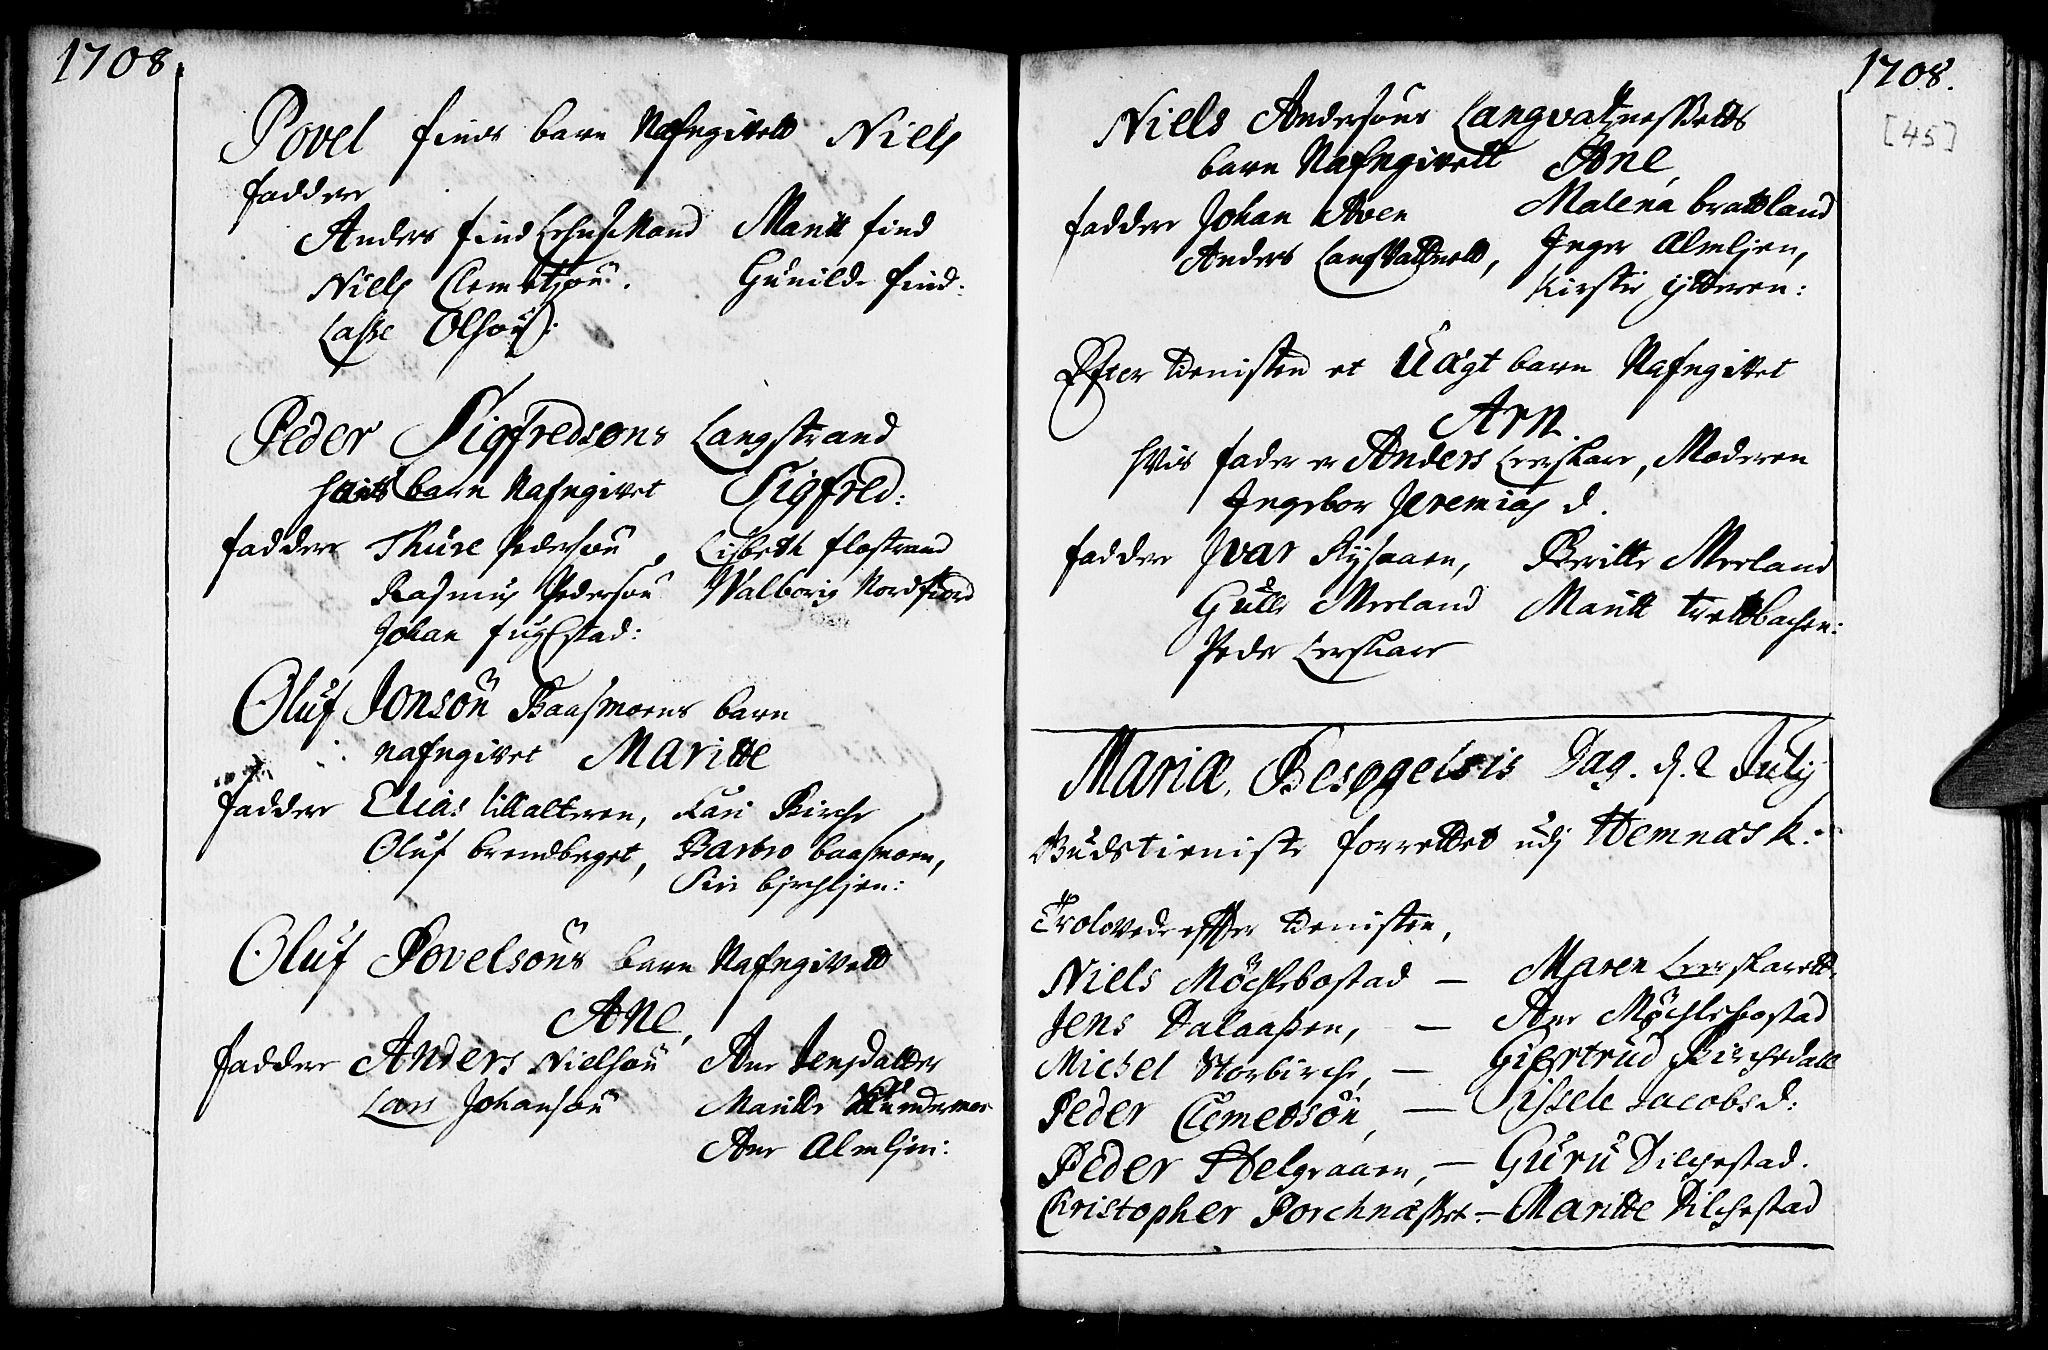 1708.
Povel finds barn Nafngivett Niels
faddere
Anders find Lehnsmand Maritt find
Niels Clemetsøn. Gunilde find:
Lasse Olsøn:
Peder Sigfredsøns Langstrand
barn Nafngivet Sigfred:
faddere Thure Pedersøn, Lisbeth flostrand
Rasmus Pedersøn Walborig Nordfiord
Johan fuglstad:
Oluf Jonsøn Baasmoens barn
nafngivet Maritte
faddere Elias lillalteren, Kari Birche
Oluf brendbeget, Barbro baasmoen,
Siri birchljen:
Oluf Povelsøns barn Nafngivett
Ane,
faddere Anders Nielsøn Ane Jensdatter
Lars Johansøn Maritte
Ane Almljen:
1708.
[45]
Niels Andersøns Langvatnessetts
barn Nafngivett Ane,
faddere Johan Aven Malena brattland
Anders Langvattnett, Inger Almljen,
Kirstie ytteren:
Efter tienisten et Uægt barn Nafngivet
Arn.
hvis fader er Anders Leerskare, Moderen
Ingebor Jeremias d.
faddere Ivar Rysaaen, Beritte Meeland
Gulle Meeland Maritt trettbachen:
Peder Leerskare
Mariæ Besøgelsis Dag. d. 2 July
Gudstieniste forrettet udj Hemnæs k:
Trolovede effter tienisten,
Niels Möchlebostad — Maren Leerskarett
Jens Dalaaßen, — Ane Möchlebostad
Michel Storbirche, — Giertrud Birchedall
Peder Clemetsøn, — Sissele Jacobsd:
Peder Helgraaen, — Guru Dilchestad.
Christopher Forchnæsset — Maritte Dilchestad